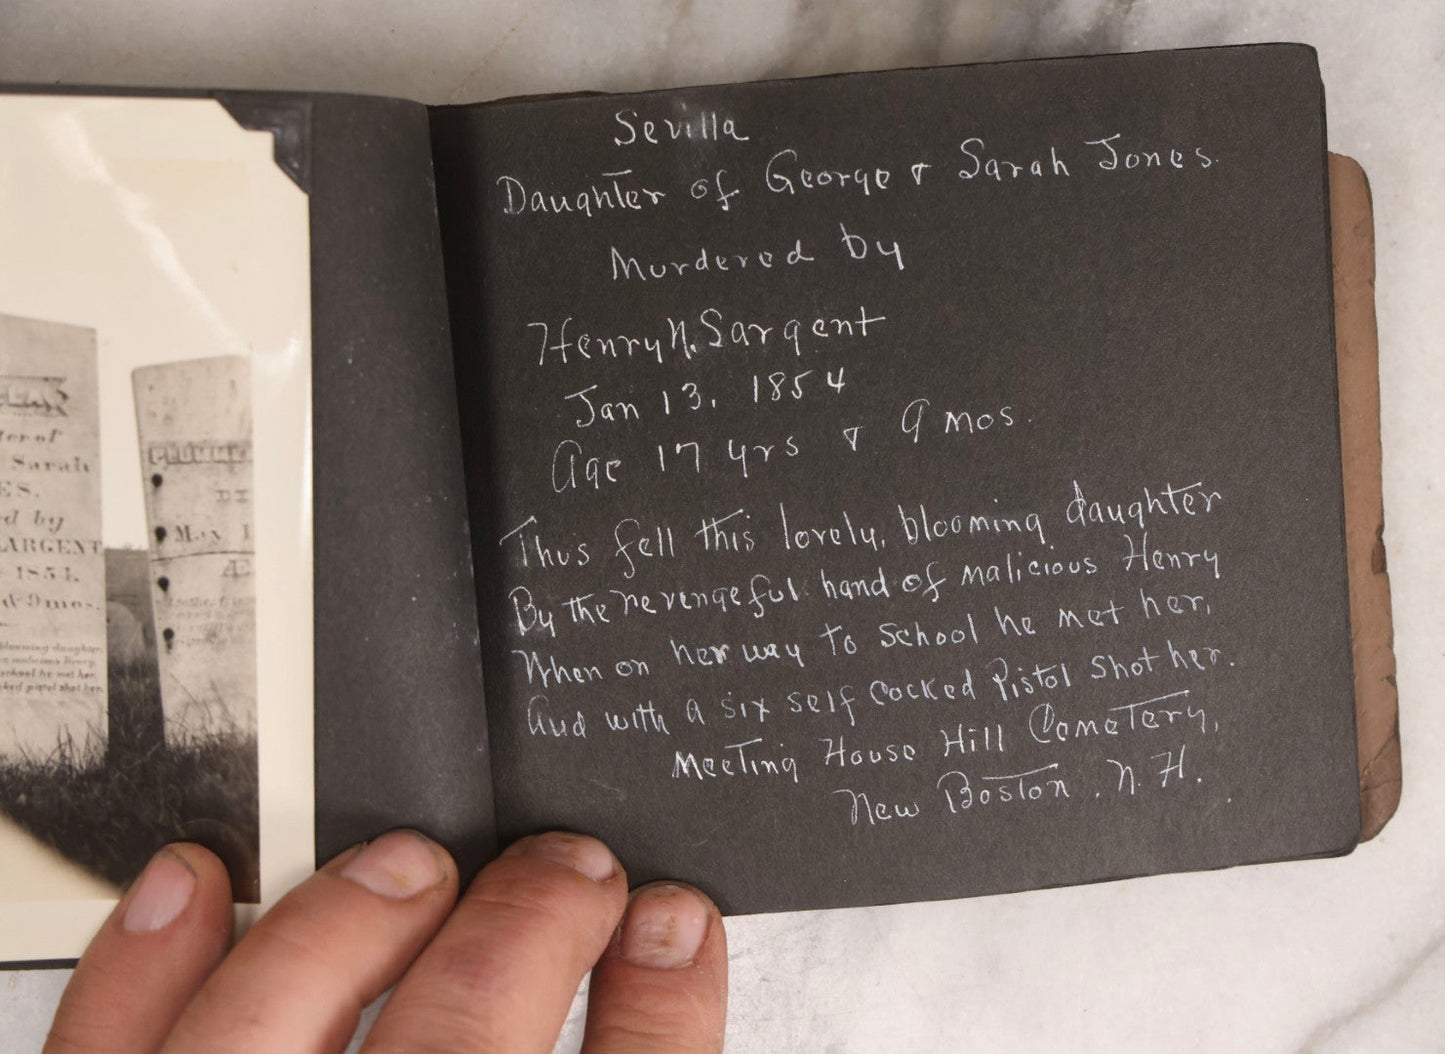 ter of
Sarah
ES.
ed by
ARGENT
1854.
& 9mos.
blooming daughter,
malicious Henry,
school he met her,
cked pistol shot her.
PLUMM
DI
May 1
Æ
Sevilla
Daughter of George & Sarah Jones.
Murdered by
Henry N. Sargent
Jan 13, 1854
Age 17 yrs & 9 mos.
Thus fell this lovely, blooming daughter
By the revengeful hand of malicious Henry
When on her way to School he met her,
And with a six self cocked Pistol shot her.
Meeting House Hill Cemetery,
New Boston, N. H.